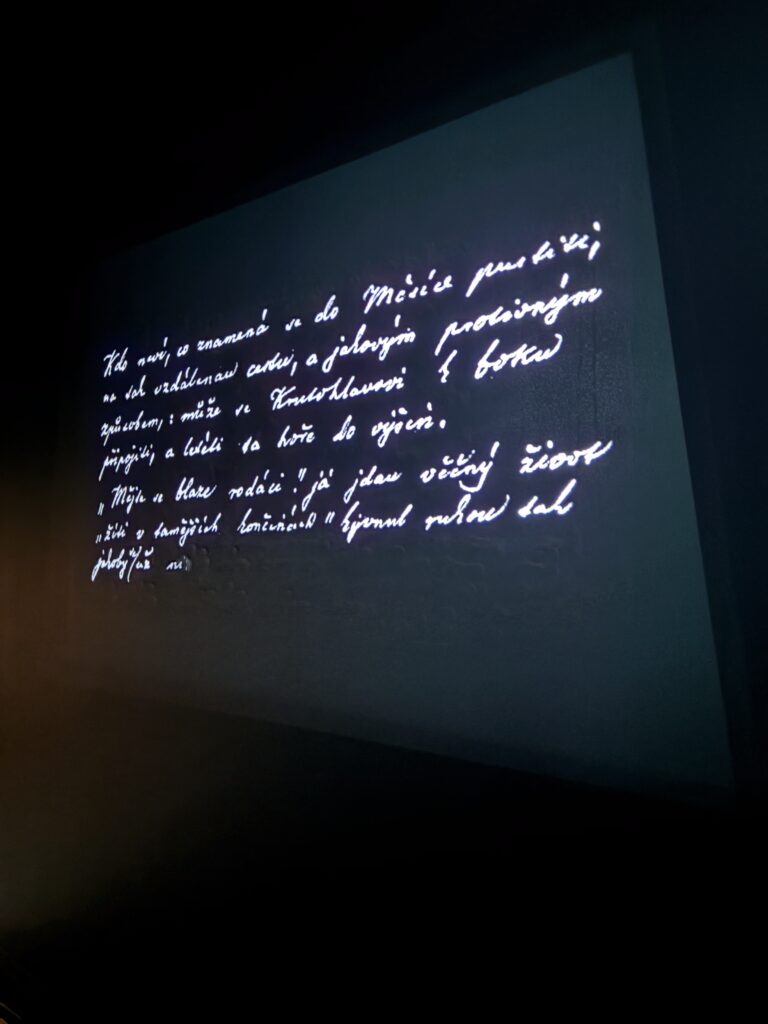 Kdo neví, co znamená se do Měsíce pustiti,
na tak vzdálenau cestu, a jakovým protivným
způsobem, : může se Krutohlavovi k boku
připojiti, a letěti ta hoře do výšin.
„Mějte se blaze rodáci!" já jdau věčný život
„žíti v tamějších končinách" kývnul rukou tak
jakoby již